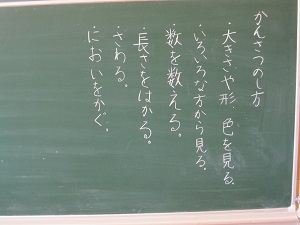 かんさつのし方
・大きさや形、色を見る。
・いろいろな方から見る。
・数を数える。
・長さをはかる。
・さわる。
・においをかぐ。